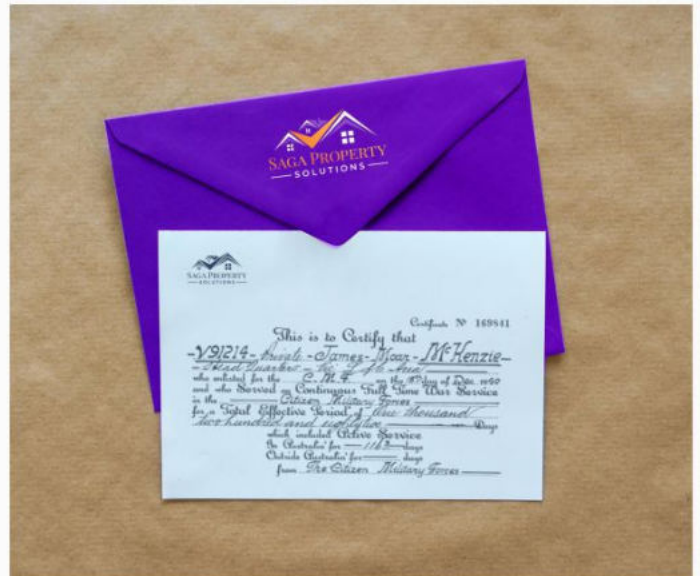 SAGA PROPERTY
SOLUTIONS
SAGA PROPERTY
SOLUTIONS
Certificate Nº 169841
This is to Certify that
-V91214- Private -James-Moar-McKenzie-
Head Quarters
who enlisted for the C.M.F. on the day of
and who Served on Continuous Full Time War Service
in the Citizen Military Forces
for a Total Effective Period of One thousand
two hundred and Days
which included Active Service
In Australia for 1163 days
Outside Australia for days
from The Citizen Military Forces